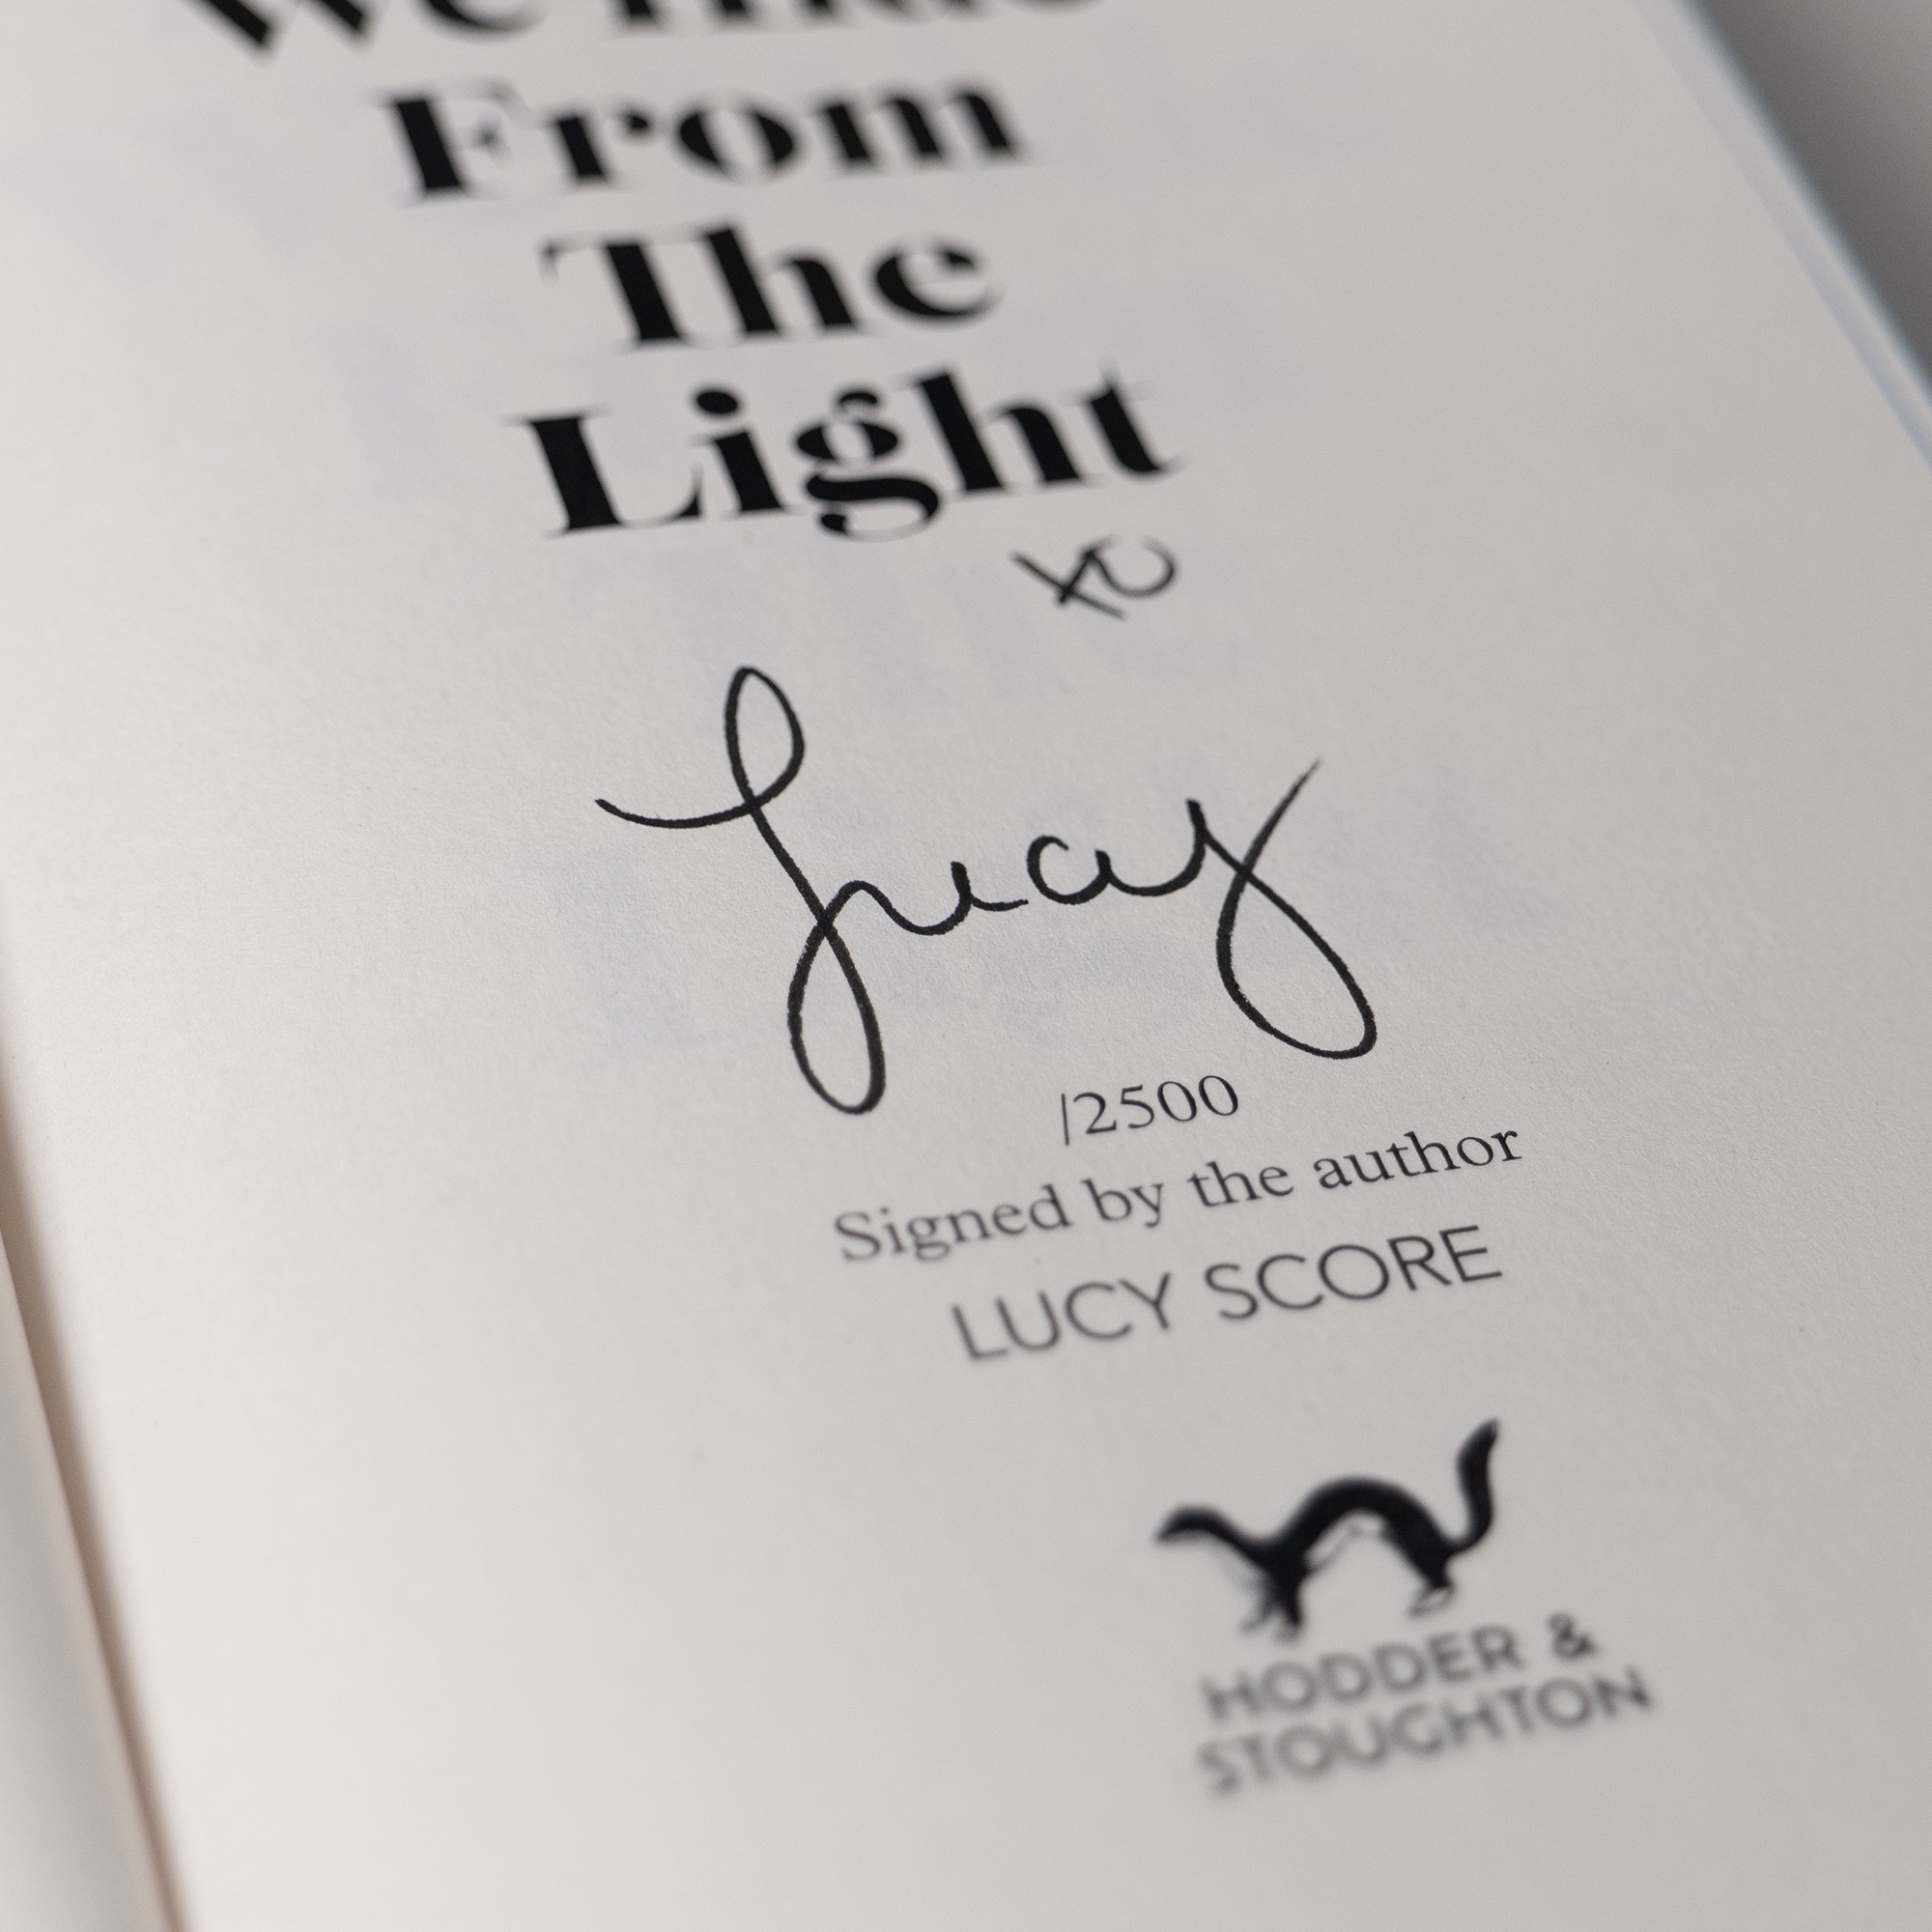 We Hide
From
The
Light
XO
Lucy
/2500
Signed by the author
LUCY SCORE
HODDER &
STOUGHTON